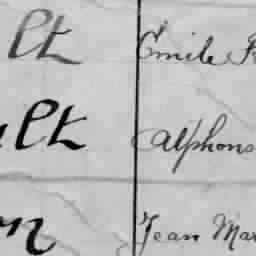 lt Émile F
ult Alphons
n Jean Mar